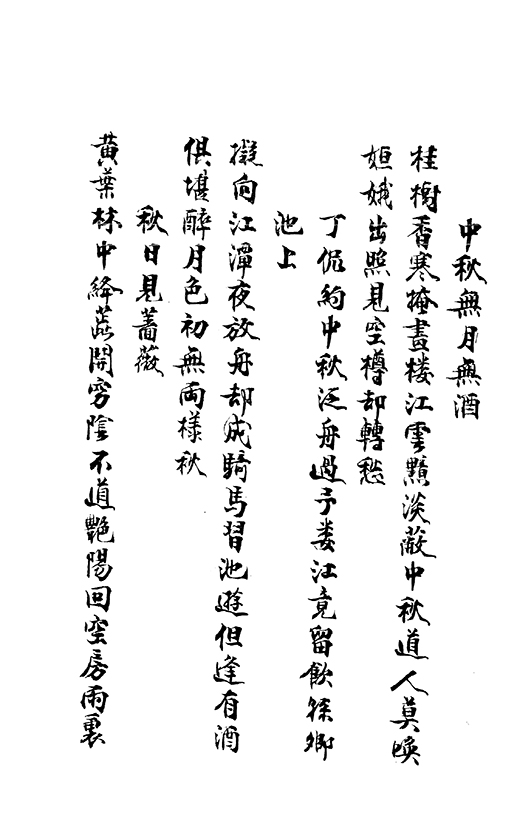 中秋無月無酒
桂樹香寒掩畫樓江雲黯淡蔽中秋道人莫喚
姮娥出照見空樽却轉愁
丁侃約中秋泛舟過予婁江竟留飲徐卿
池上
擬向江潭夜放舟却成騎馬習池遊但逢有酒
俱堪醉月色初無兩樣秋
秋日見薔薇
黃葉林中絳蕊開窮陰不道艷陽回空房雨裏